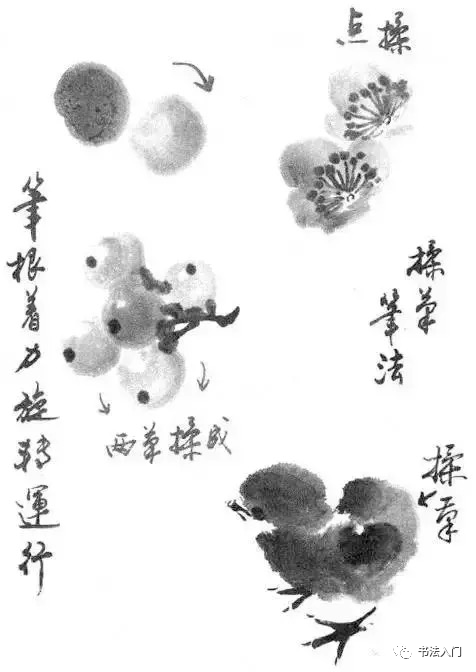 点揉
揉笔
筆法
筆根着力旋转運行
两笔揉成
揉笔
书法入门